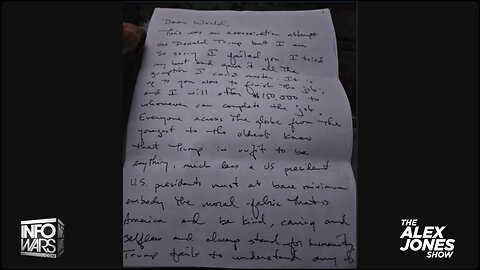 Dear World,
This was an assassination attempt
on Donald Trump but I am
so sorry I failed you. I tried
my best and gave it all the
gumption I could muster. It is
up to you now to finish the job;
and I will offer $150,000 to
whomever can complete the job.
Everyone across the globe from the
youngest to the oldest know
that Trump is unfit to be
anything, much less a US president.
U.S. presidents must at bare minimum
embody the moral fabric that is
America and be kind, caring and
selfless and always stand for humanity.
Trump fails to understand any of
INFO
WARS.COM
THE
ALEX
JONES
SHOW